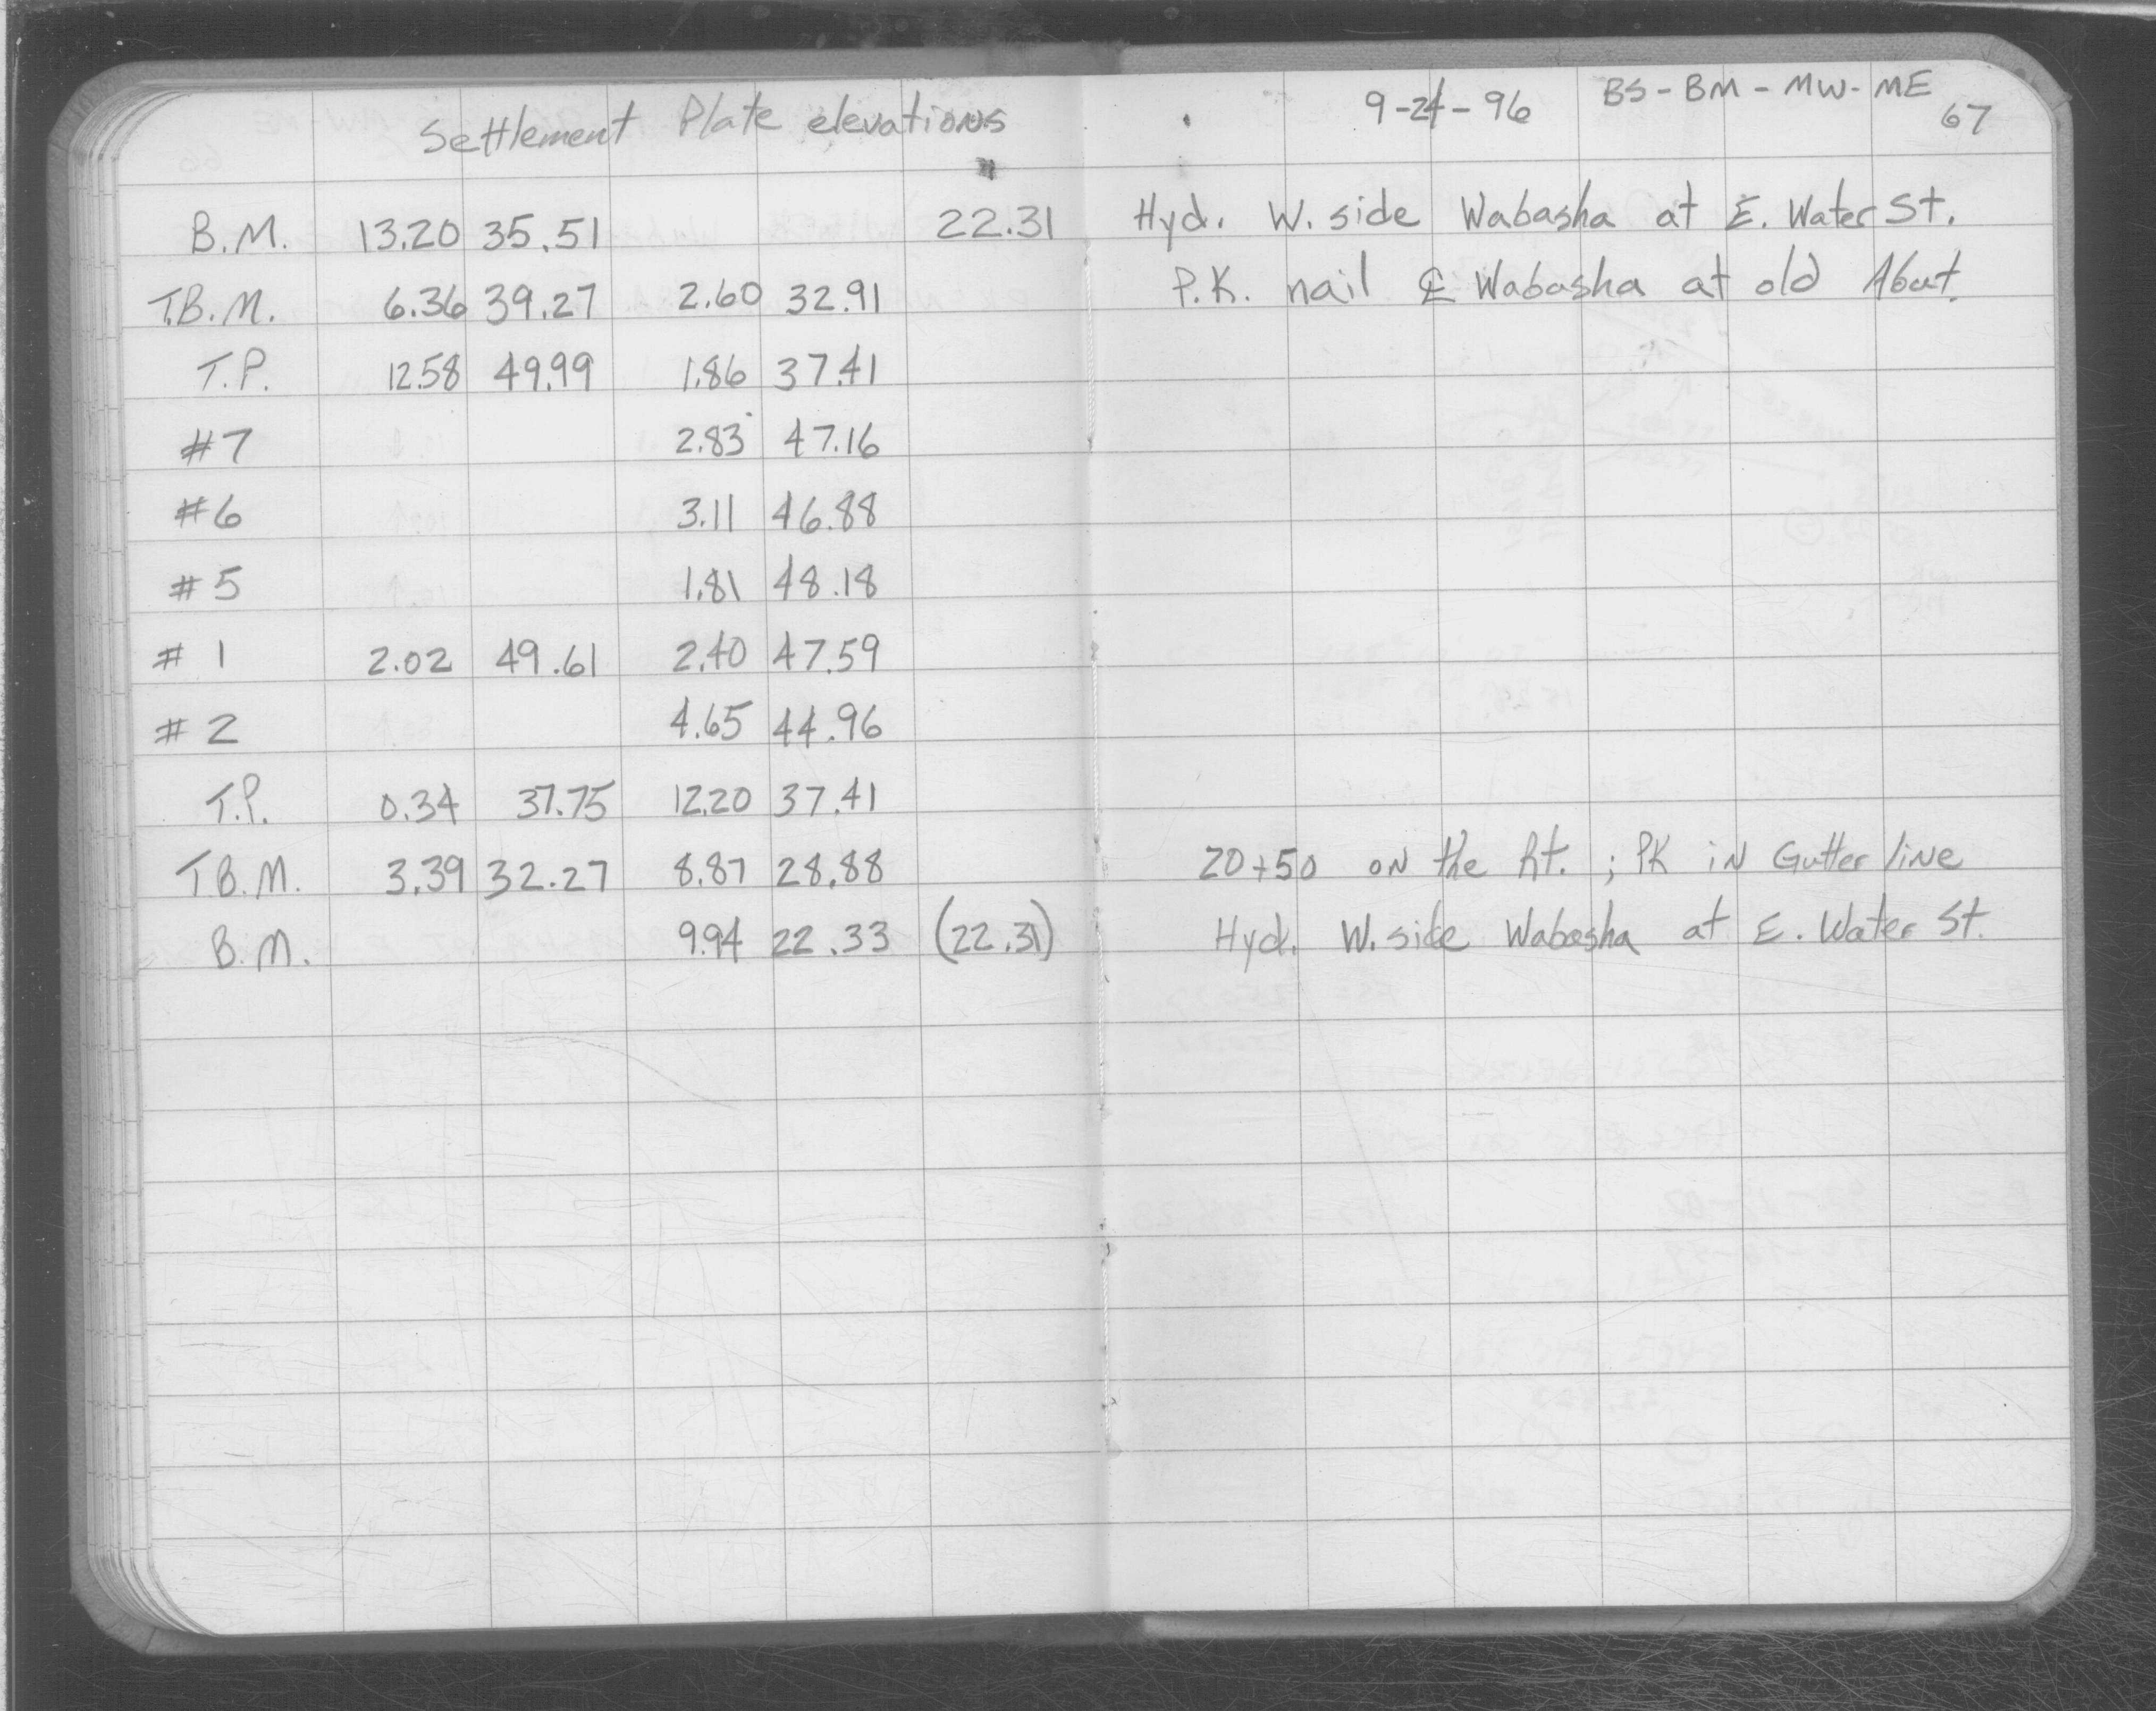 Settlement Plate elevations 9-24-96 BS-BM-MW-ME 67
B.M. 13.20 35.51 22.31 Hyd. W. side Wabasha at E. Water St.
T.B.M. 6.36 39.27 2.60 32.91 P.K. nail ℄ Wabasha at old Abut.
T.P. 12.58 49.99 1.86 37.41
#7 2.83 47.16
#6 3.11 46.88
#5 1.81 48.18
# 1 2.02 49.61 2.40 47.59
# 2 4.65 44.96
T.P. 0.34 37.75 12.20 37.41
T.B.M. 3.39 32.27 8.87 28.88 20+50 on the Rt. ; PK in Gutter line
B.M. 9.94 22.33 (22.31) Hyd. W. side Wabasha at E. Water St.